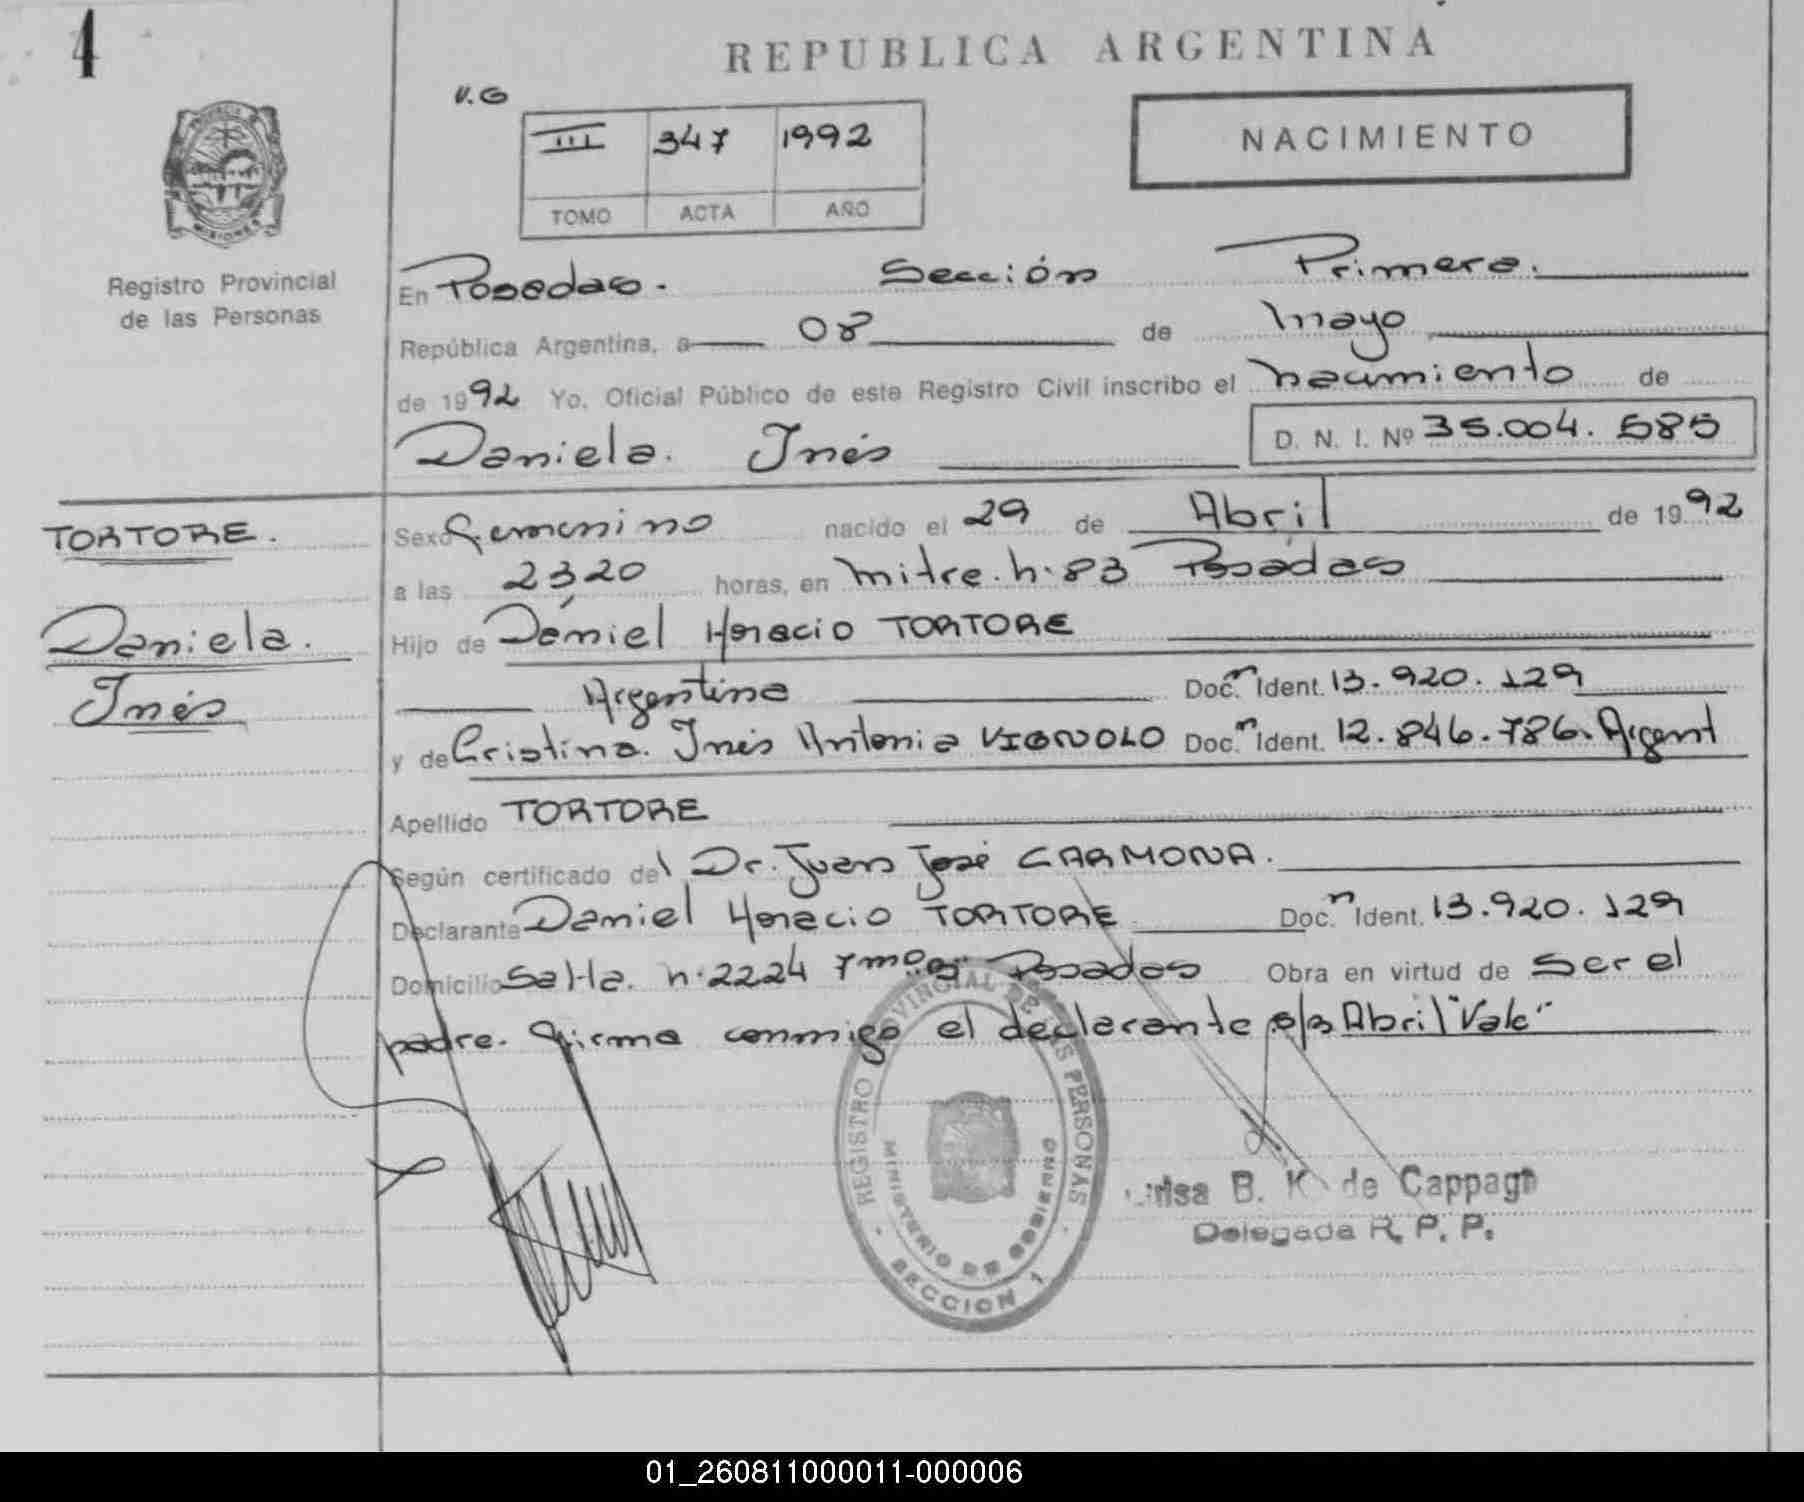 4
REPUBLICA ARGENTINA
V.G
III 347 1992
TOMO ACTA AÑO
NACIMIENTO
PROVINCIA DE MISIONES
Registro Provincial
de las Personas
En Posadas. Sección Primera.
República Argentina, a 08 de mayo
de 1992 Yo, Oficial Público de este Registro Civil inscribo el nacimiento de
Daniela. Inés D. N. I. Nº 35.004.585
TORTORE.
Daniela.
Inés
Sexo Femenino nacido el 29 de Abril de 1992
a las 2320 horas, en mitre. n. 83 Posadas
Hijo de Daniel Horacio TORTORE
Argentina Doc.n Ident. 13.920.129
y de Cristina. Inés Antonia VIGNOLO Doc.n Ident. 12.846.786. Argent
Apellido TORTORE
Según certificado del Dr. Juan José CARMONA.
Declarante Daniel Horacio TORTORE Doc.n Ident. 13.920.129
Domicilio Salta. n. 2224 7mo Posadas Obra en virtud de Ser el
padre. Firma conmigo el declarante s/r Abril "Vale"
REGISTRO PROVINCIAL DE LAS PERSONAS
MINISTERIO DE GOBIERNO
SECCION 1
B. K de Cappag
Delegada R. P. P.
01_260811000011-000006